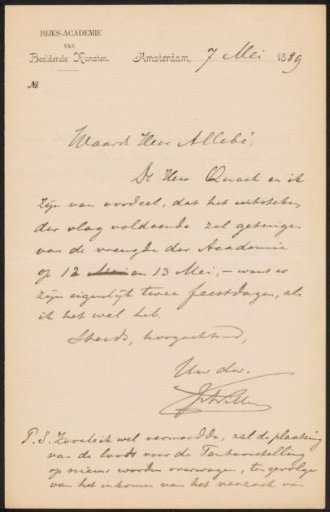 RIJKS-ACADEMIE
VAN
Beeldende Kunsten.
Amsterdam, 7 Mei 1889
No
Waarde Heer Allebé,
De Heer Quack en ik
zijn van oordeel, dat het uitsteken
der vlag voldoende zal getuigen
van de vreugde der Academie
op 12 Mei en 13 Mei, – want er
zijn eigenlijk twee feestdagen, als
ik het wel heb.
Steeds, hoogachtend,
Uw dw.
P.S. Zooals ik wel vermoedde, zal de plaatsing
van de loods voor de Tentoonstelling
op nieuw worden overwogen, ten gevolge
van het inkomen van het verzoek van